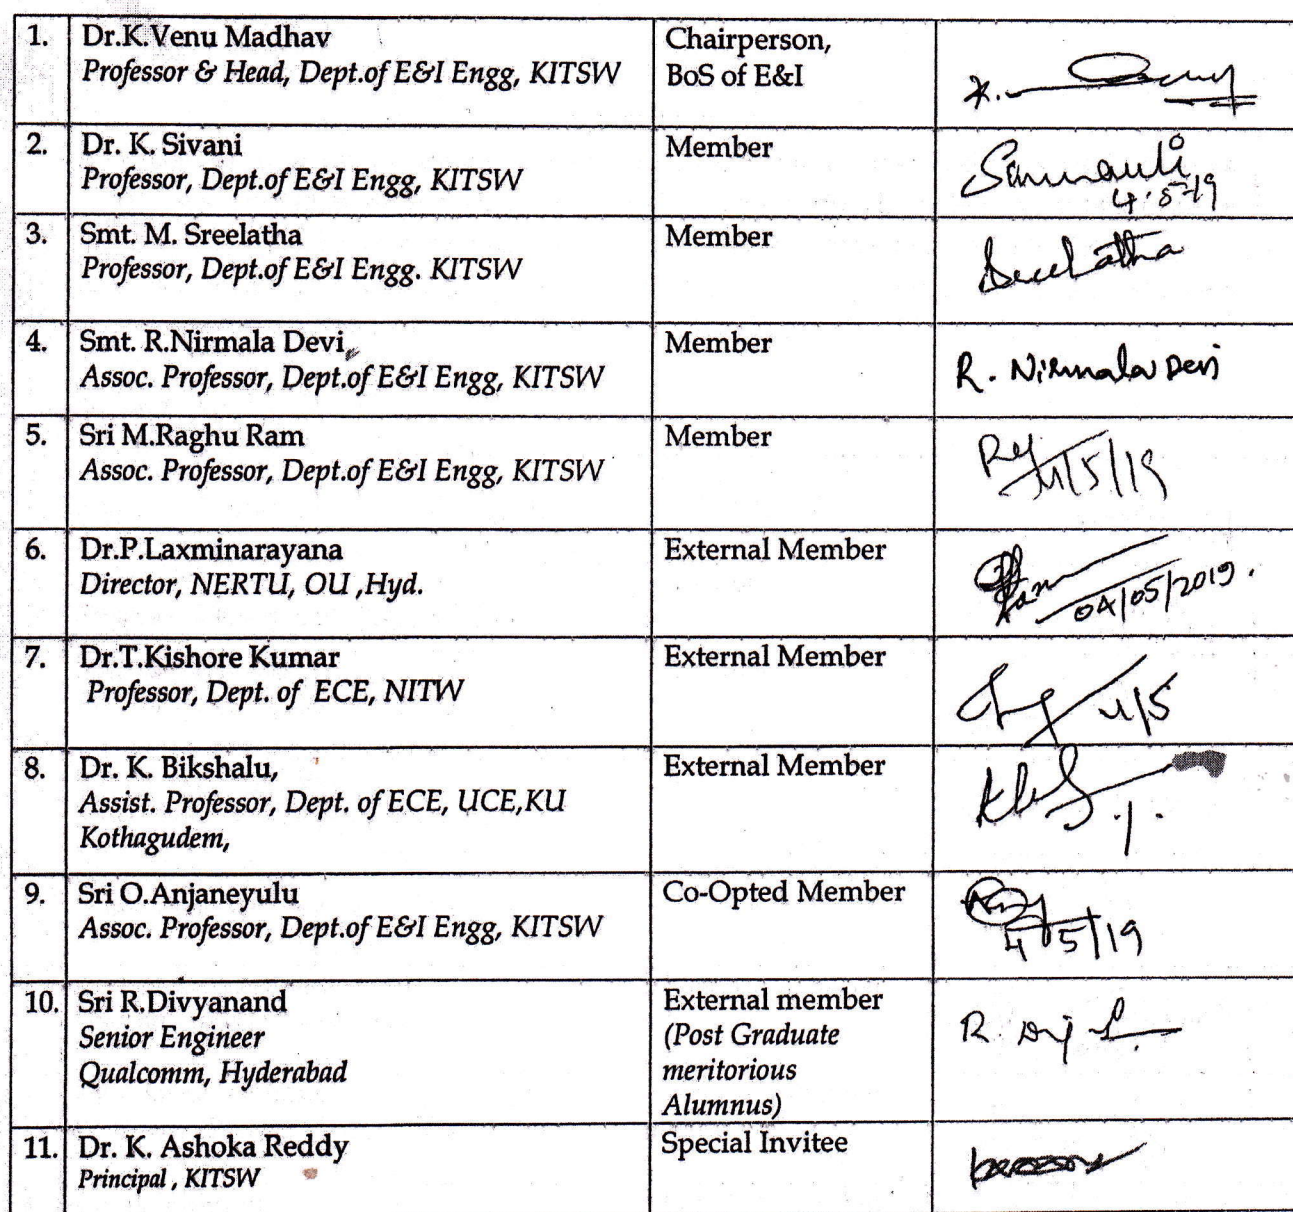 1. Dr.K.Venu Madhav
Professor & Head, Dept.of E&I Engg, KITSW
Chairperson,
BoS of E&I
2. Dr. K. Sivani
Professor, Dept.of E&I Engg, KITSW
Member
4.5-19
3. Smt. M. Sreelatha
Professor, Dept.of E&I Engg. KITSW
Member
Sreelatha
4. Smt. R.Nirmala Devi,
Assoc. Professor, Dept.of E&I Engg, KITSW
Member
R. Nirmala Devi
5. Sri M.Raghu Ram
Assoc. Professor, Dept.of E&I Engg, KITSW
Member
4/5/19
6. Dr.P.Laxminarayana
Director, NERTU, OU ,Hyd.
External Member
04/05/2019.
7. Dr.T.Kishore Kumar
Professor, Dept. of ECE, NITW
External Member
4/5
8. Dr. K. Bikshalu,
Assist. Professor, Dept. of ECE, UCE,KU
Kothagudem,
External Member
9. Sri O.Anjaneyulu
Assoc. Professor, Dept.of E&I Engg, KITSW
Co-Opted Member
4/5/19
10. Sri R.Divyanand
Senior Engineer
Qualcomm, Hyderabad
External member
(Post Graduate
meritorious
Alumnus)
R.
11. Dr. K. Ashoka Reddy
Principal , KITSW
Special Invitee